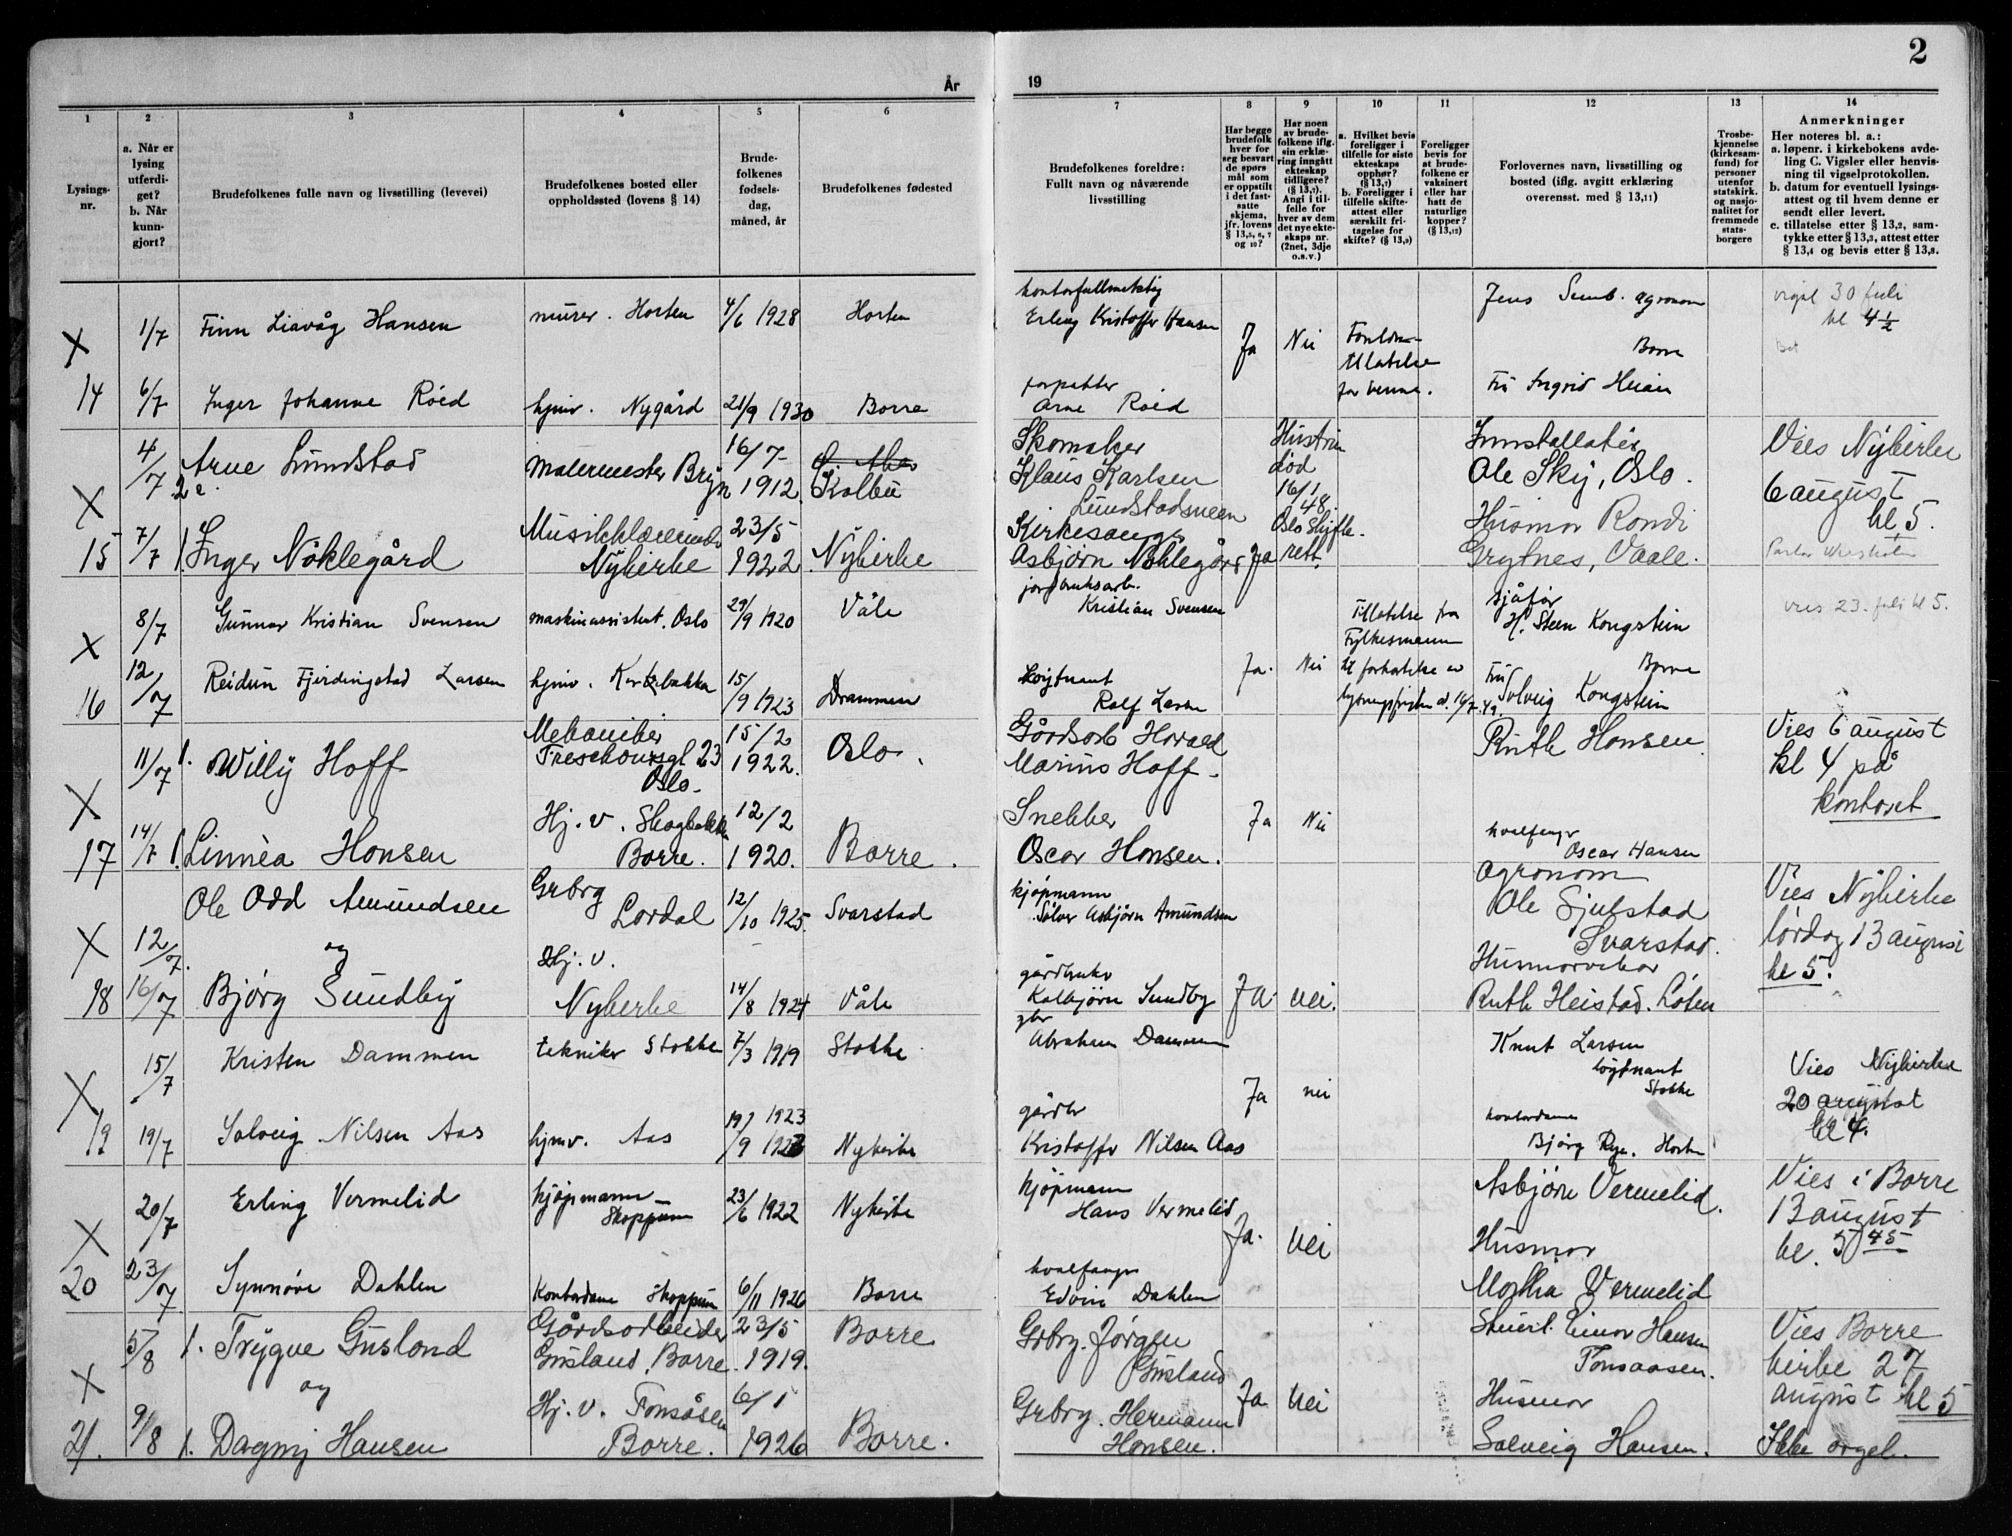 2
År
19
1
2
3
4
5
6
7
8
9
10
11
12
13
14
Lysings-
nr.
a. Når er
lysing
utferdi-
get?
b. Når
kunn-
gjort?
Brudefolkenes fulle navn og livsstilling (levevei)
Brudefolkenes bosted eller
oppholdssted (lovens § 14)
Brude-
folkenes
fødsels-
dag,
måned, år
Brudefolkenes fødested
Brudefolkenes foreldre:
Fullt navn og nåværende
livsstilling
Har begge
brudefolk
hver for
seg besvart
de spørs
mål som
er oppstilt
i det fast-
satte
skjema,
jfr. lovens
§ 13,5, 6, 7
og 10?
Har noen
av brude-
folkene iflg.
sin erklæ-
ring inngått
ekteskap
tidligere?
(§ 13,7).
Angi i til-
felle for
hver av dem
det nye ekte-
skaps nr.
(2net, 3dje
o.s.v.)
a. Hvilket bevis
foreligger i
tilfelle for siste
ekteskaps
opphør?
(§ 13,7)
b. Foreligger i
tilfelle skifte-
attest eller
særskilt fri-
tagelse for
skifte? (§ 13,9)
Foreligger
bevis for
at brude-
folkene er
vaksinert
eller har
hatt de
naturlige
kopper?
(§ 13,12)
Forlovernes navn, livsstilling og
bosted (iflg. avgitt erklæring
overensst. med § 13,11)
Trosbe-
kjennelse
(kirkesam-
fund) for
personer
utenfor
statskirk.
og nasjo-
nalitet for
fremmede
stats-
borgere
Anmerkninger
Her noteres bl. a.:
a. løpenr. i kirkebokens avde-
ling C. Vigsler eller henvis-
ning til vigselprotokollen.
b. datum for eventuell lysings-
attest og til hvem denne er
sendt eller levert.
c. tillatelse etter § 13,2, sam-
tykke etter § 13,3, attest etter
§ 13,4 og bevis etter § 13,8.
X
14
1/7
Finn Liavåg Hansen
murer. Horten
4/6 1928
Horten
kontorfullmektig
Erling Kristoffer Hansen
Ja
Nei
Foreldre-
tillatelse
for henne.
Jens Semb. agronom
Borre
30 juli
kl 4 ½
6/7
Inger Johanne Röed
hjmv. Nygård
21/9 1930
Borre
forpakter
Arne Röed
Fru Ingrid Heian
X
15
4/7
2 e.
Arne Lundstad
Malermester Bryn
16/7
1912.
Kolbu
Skomaker
Klaus Karlsen
Lundstadsveen
Hustrun
död
16/1
48.
Oslo Skifte-
rett.
Installatör
Ole Sky, Oslo.
Vies Nykirke
6 august
kl 5.
7/7
1. Inger Nöklegård
Musikklærerinde
Nykirke
23/5
1922
Nykirke
Kirkesanger
Asbjørn Nöklegård
Ja
Husmor Rondi
Grytnes, Vaale.
X
16
8/7
Gunnar Kristian Svensen
maskinassistent. Oslo
29/9 1920
Våle
jordbruksarb.
Kristian Svensen
Ja.
Nei
Tillatelse fra
Fylkesmann
til forkortelse av
lysningsfristen d. 16/7-49
sjåfør
H. Steen Kongstein
Borre
vies 23. juli kl 5.
12/7
Reidun Fjerdingstad Larsen
hjmv.
15/9 1923
Drammen
løytnant
Rolf Larsen
Fru
Solveig Kongstein
X
17
11/7
1. Willy Hoff
Mekaniker
Treschousgt 23
Oslo.
15/2
1922.
Oslo.
Gårdsarb Harald
Marius Hoff.
Ja
Nei
Ruth Hansen
Vies 6 august
kl 4 på
kontoret
14/7
1. Linnèa Hansen
Hj. v. Skogbakken
Borre.
12/2
1920.
Borre.
Snekker
Oscar Hansen.
hvalfanger
Oscar Hansen
X
18
12/7.
Ole Odd Amundsen
og
Grbrg
Lordal
12/10 1925.
Svarstad
kjøpmann
Sölver Asbjörn Amundsen
Ja.
nei.
Agronom
Ole Gjulstad
Svarstad.
Vies Nykirke
lördag 13 august
kl 5.
16/7
Bjørg Sundby
Hj. v.
Nykirke
14/8 1924
Våle
gårdbruker
Kolbjørn Sundby
Husmorvikar
Ruth Heistad. Löten
X
19
15/7
Kristen Dammen
tekniker Stokke
7/3 1919
Stokke
gbr
Abraham Dammen
Ja
nei
Knut Larsen
løytnant
Stokke
Vies Nykirke
20 august
kl 4.
19/7
Solveig Nilsen Aas
hjmv. Aas
19/9 1923
Nykirke
gårdbr
Kristoffer Nilsen Aas
kontordame
Bjørg Rye. Horten
X
20
20/7
Erling Vermelid
kjøpmann
Skoppum
23/6 1922
Nykirke
kjöpmann
Hans Vermelid
Ja.
Nei
Asbjörn Vermelid.
Vies i Borre
13 august
kl. 5 45
23/7
Synnöve Dahlen
Kontordame Skoppum
6/11 1926
Borre
hvalfanger
Edvin Dahlen
Husmor
Martha Vermelid
X
21.
5/8
1. Trygve Gusland
og
Gårdsarbeider
Gusland, Borre.
23/5
1919.
Borre
Grbrg. Jörgen
Gusland
Ja
Nei
Stuert. Einar Hansen
Tonsaasen.
Vies Borre
kirke 27
august kl 5
9/8
1. Dagny Hansen
Hj. v. Tonsåsen
Borre.
6/1
1926
Borre.
Grbrg. Hermann
Hansen.
Husmor
Solveig Hansen.
Ikke orgel.